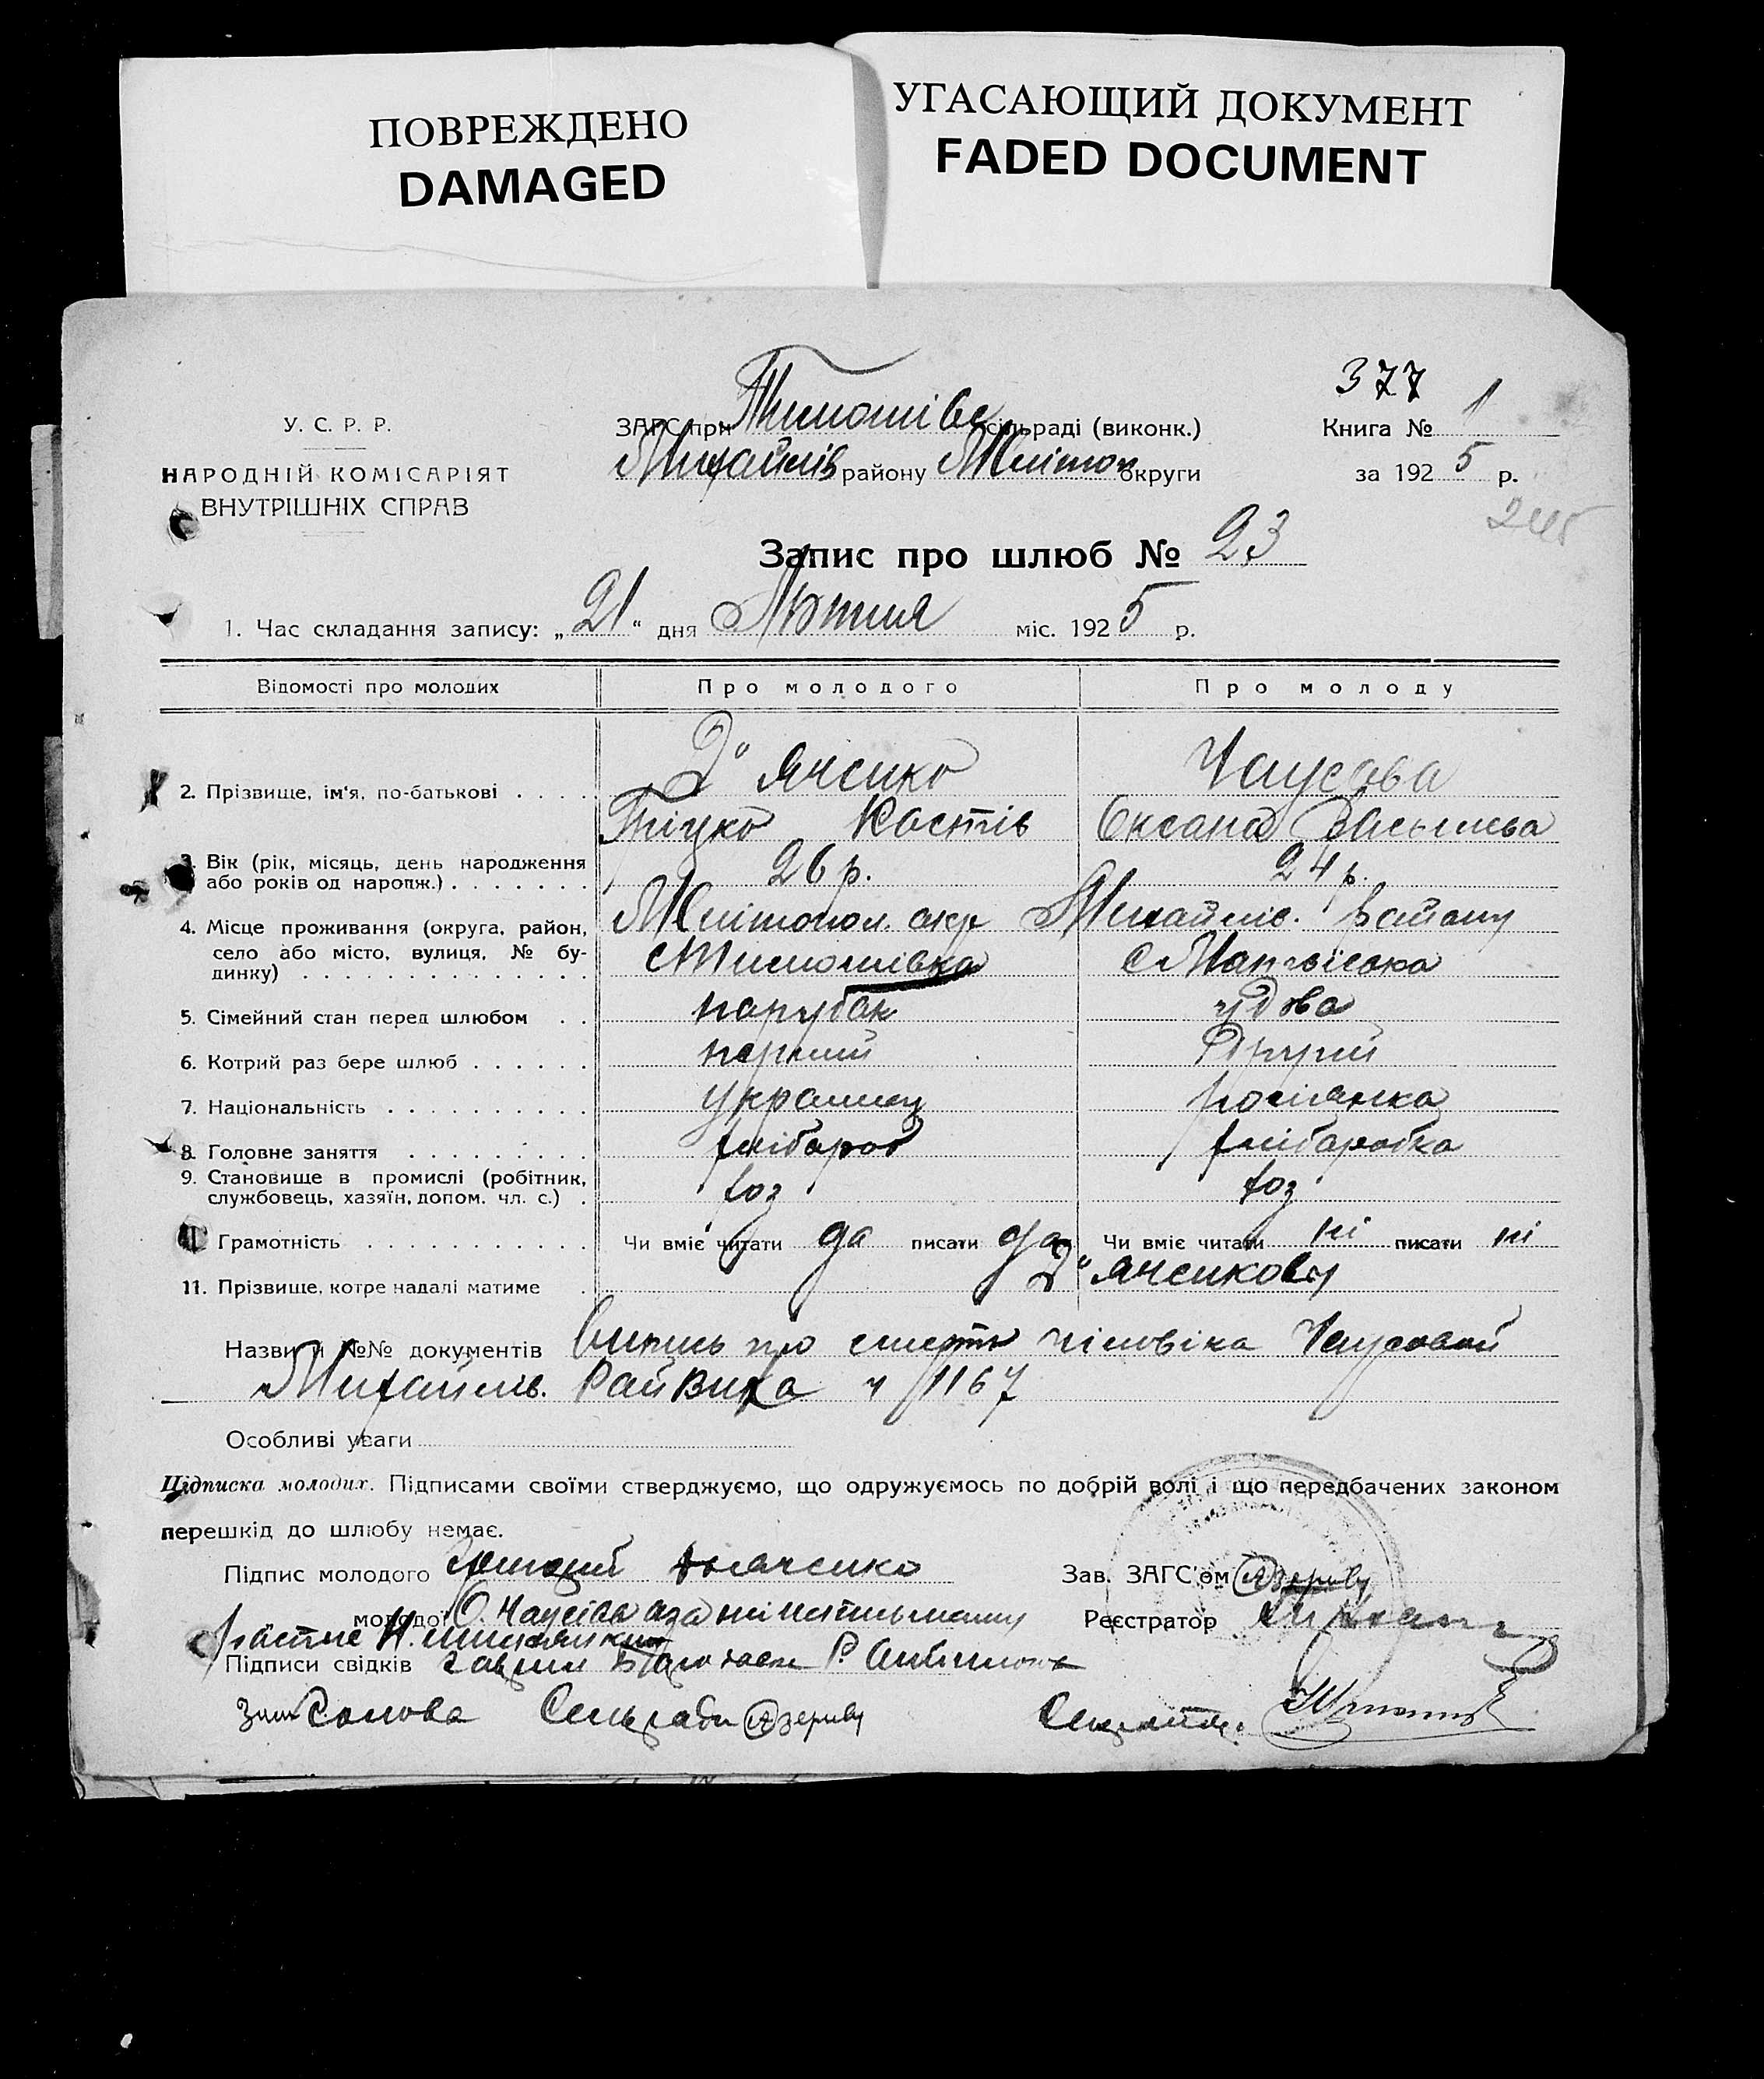 ПОВРЕЖДЕНО
DAMAGED
УГАСАЮЩИЙ ДОКУМЕНТ
FADED DOCUMENT
377
У. С. Р. Р.
НАРОДНІЙ КОМІСАРІЯТ
ВНУТРІШНІХ СПРАВ
ЗАГС при Тимошівс сільраді (виконк.)
Михайлів району Мліпоп округи
Книга № 1
за 1925 р.
245
Запис про шлюб № 23
1. Час складання запису: „21“ дня Лютня міс. 1925 р.
Відомості про молодих Про молодого Про молоду
2. Прізвище, ім'я, по-батькові . . . . Д'яченко Чаусова
Грицко Костів Оксана Васильева
3. Вік (рік, місяць, день народження або років од народж.) . . . . . . . 26 р. 24 р.
4. Місце проживання (округа, район, село або місто, вулиця, № будинку) . . . . Млітопол. окр Михайлів. Району
с Тимошівка с
5. Сімейний стан перед шлюбом . . парубак удова
6. Котрий раз бере шлюб . . . . . . перший другий
7. Національність . . . . . . . . . . українец росіянка
8. Головне заняття . . . . . . . . . хлібороб хліборобка
9. Становище в промислі (робітник, службовець, хазяїн, допом. чл. с.) . хоз хоз
Грамотність . . . . . . . . . . . Чи вміє читати да писати да Чи вміє читати ні писати ні
11. Прізвище, котре надалі матиме . Д'яченкову
Назви й №№ документів Випись про смерть чіловіка Чаусовой
Михайлів. РайВика ч 1167
Особливі уваги
Підписка молодих. Підписами своїми стверджуємо, що одружуємось по добрій волі і що передбачених законом
перешкід до шлюбу немає.
Підпис молодого Дьяченко
Зав. ЗАГС'ом
молодої О. Чаусова аза
Реєстратор
Підписи свідків
Зам Голова Сельради
Секретар.